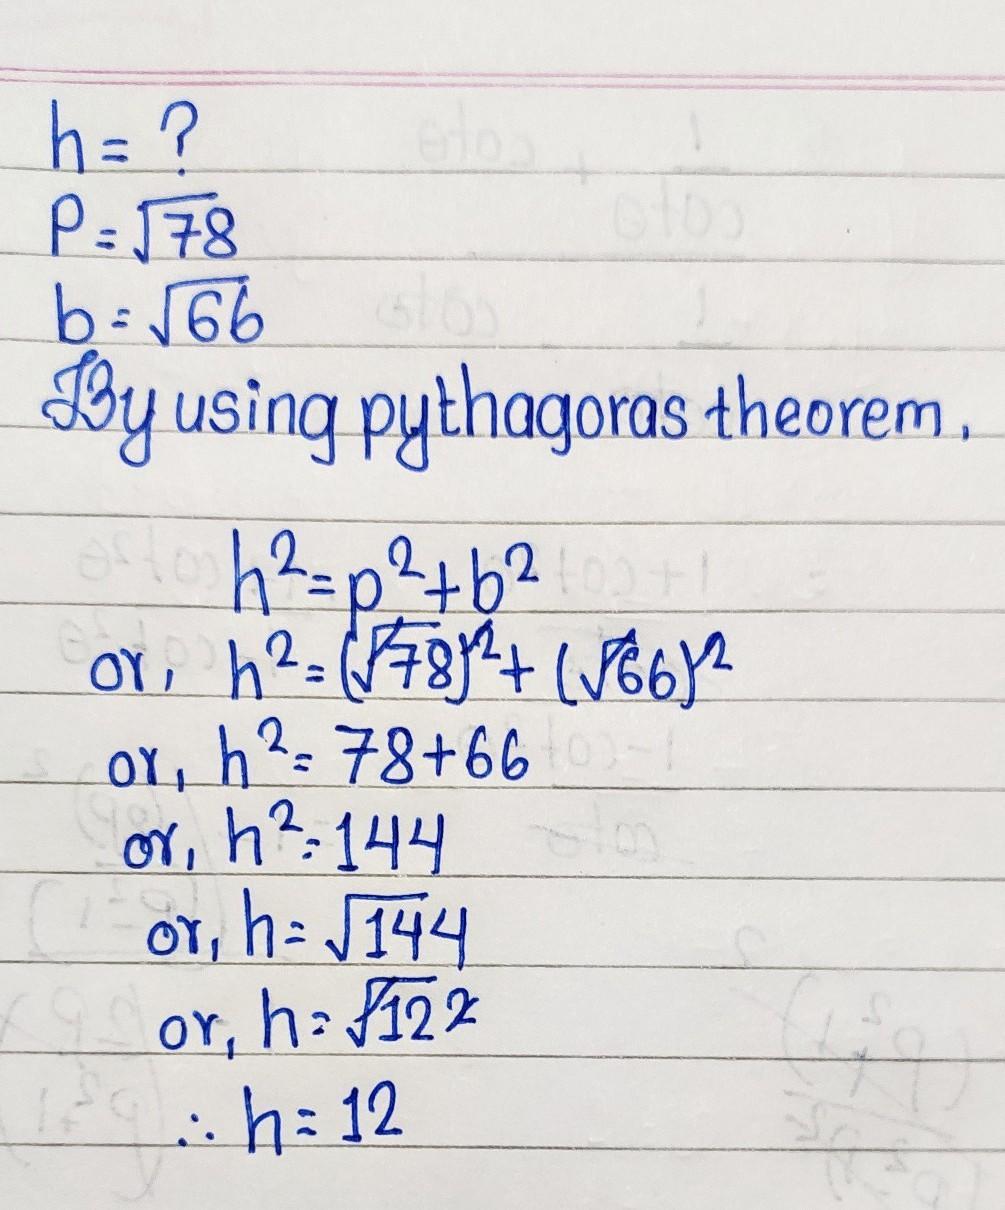 h = ?
P = √78
b = √66
By using pythagoras theorem,
h² = p² + b²
or, h² = (√78)² + (√66)²
or, h² = 78 + 66
or, h² = 144
or, h = √144
or, h = √12²
∴ h = 12